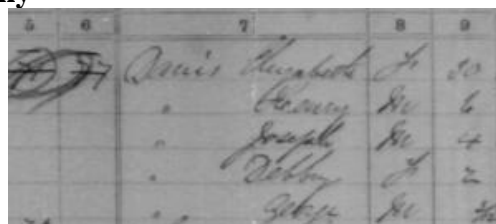 5 6 7 8 9
77 Davis Elizabeth F 30
" M 6
" Joseph M 4
" Debby F 2
" M